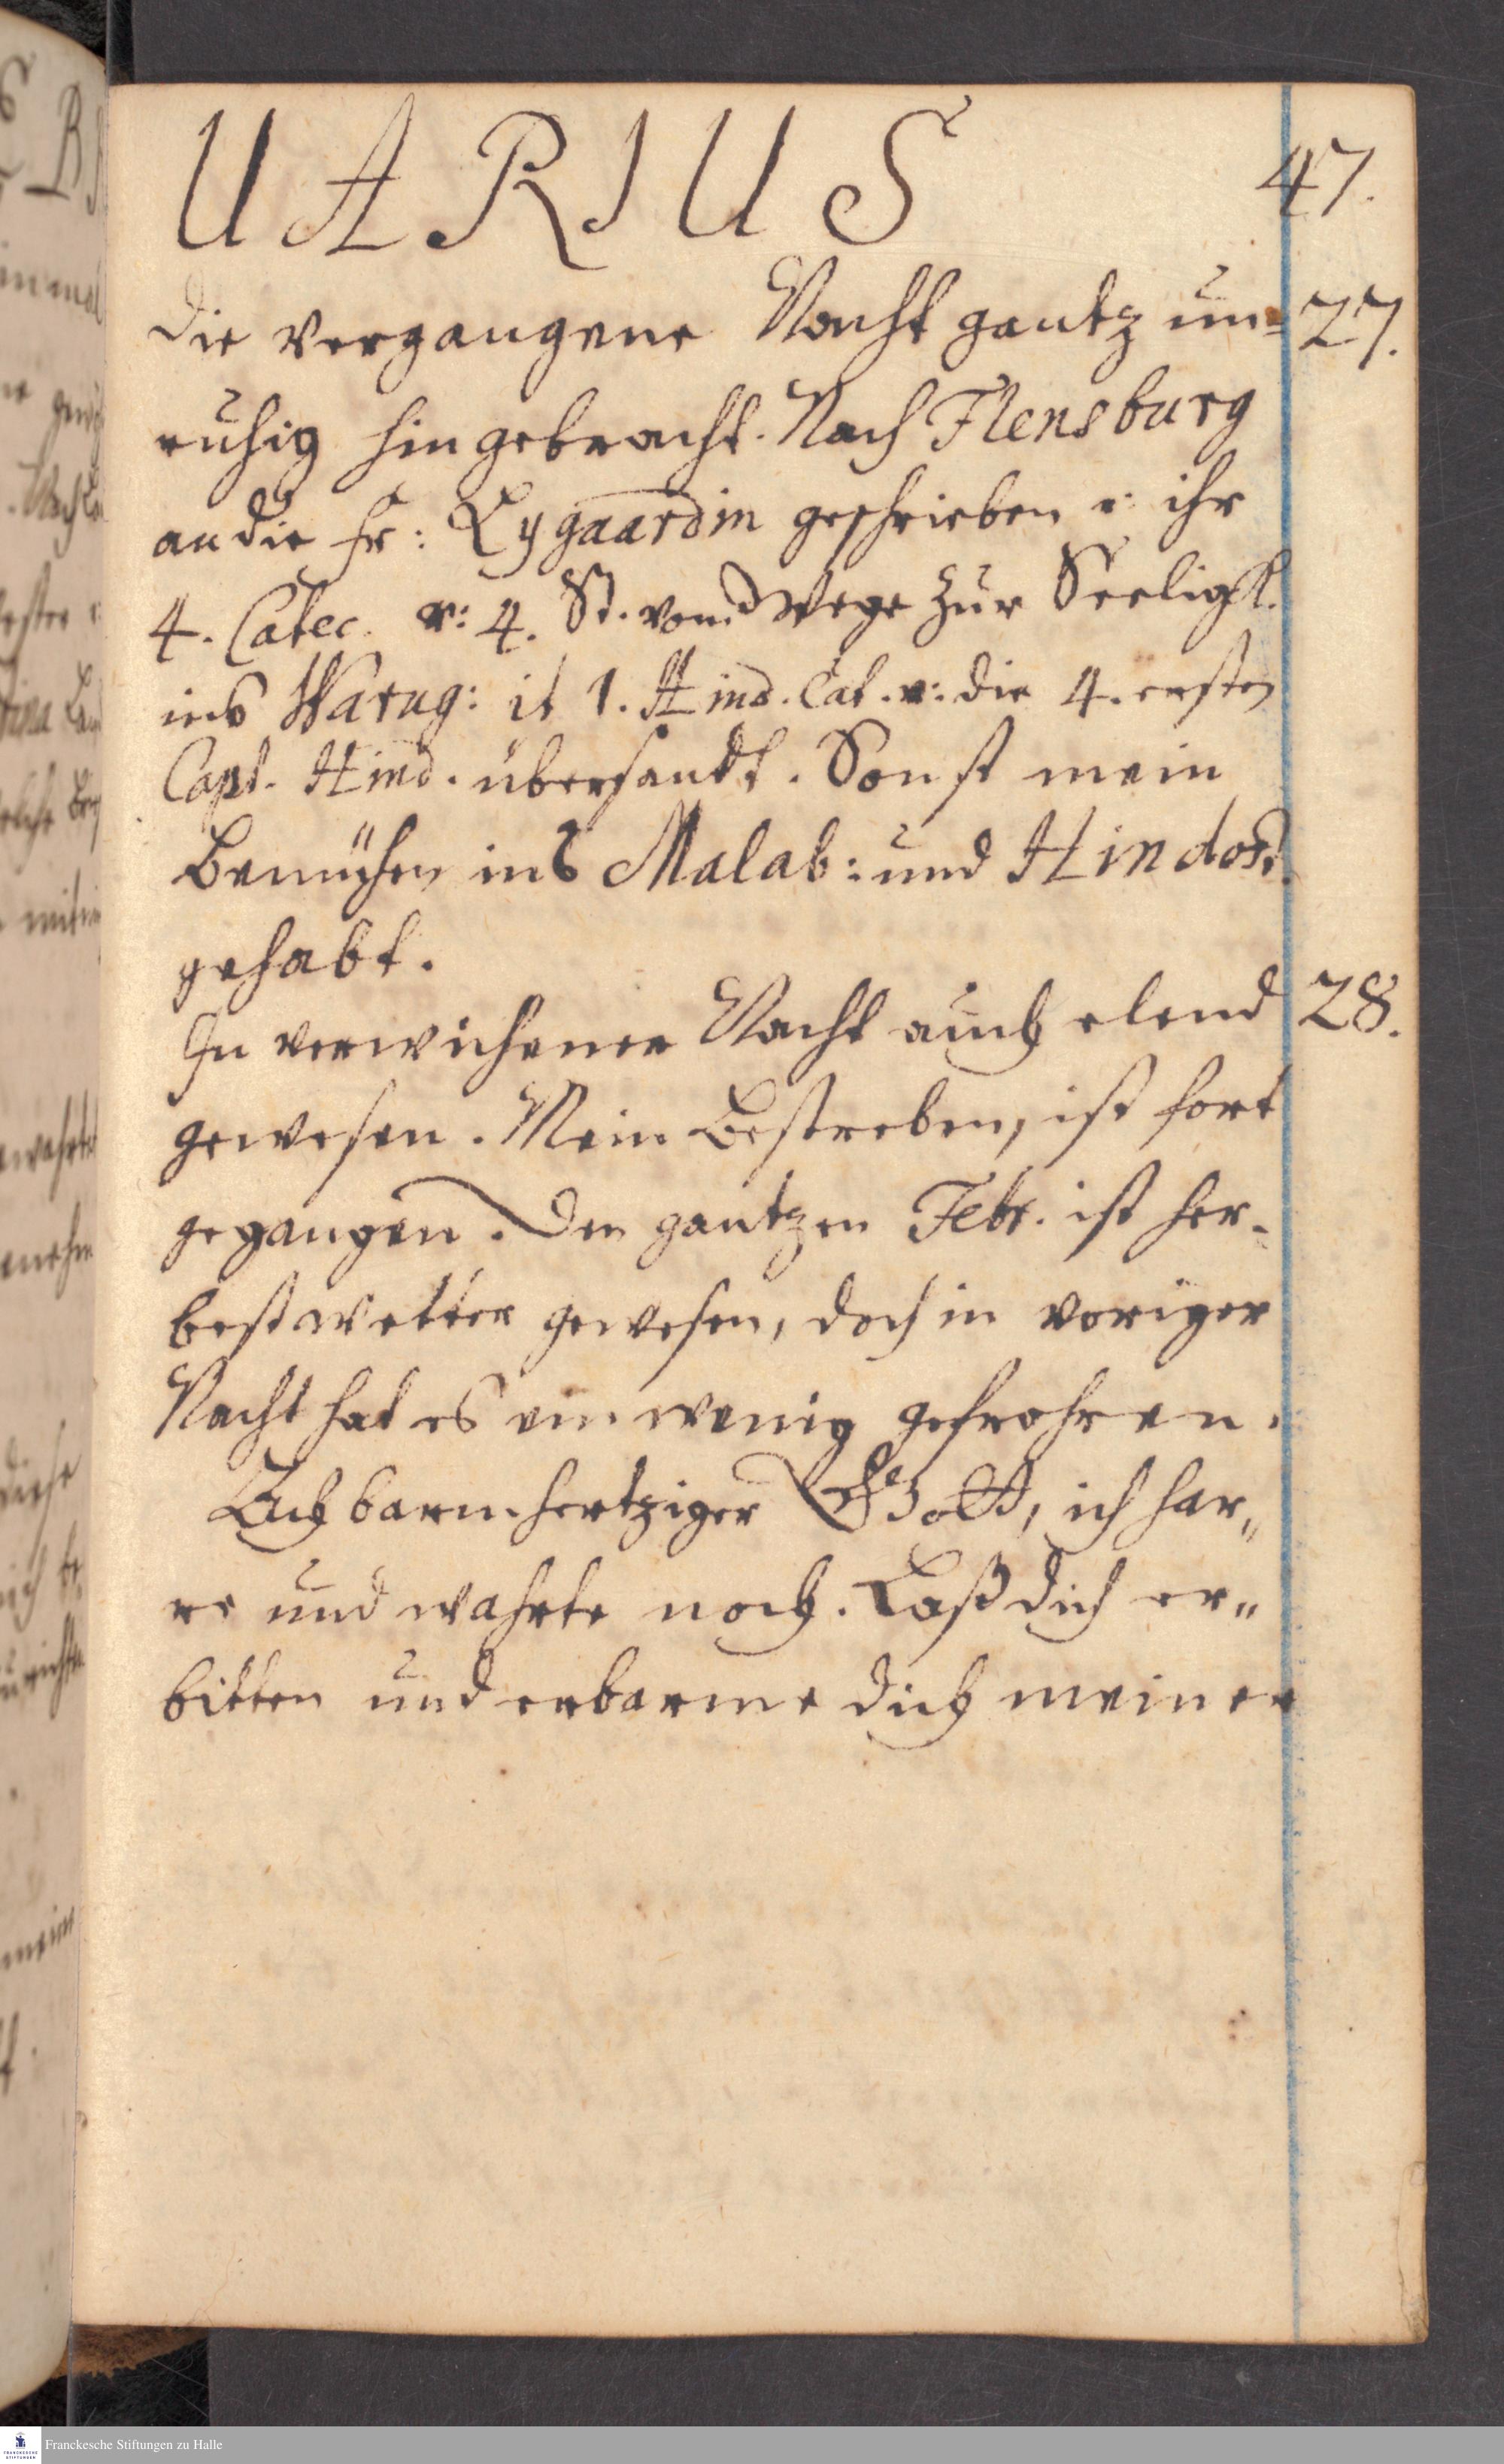 UARIUS
47.
die vergangene Nacht gantz un= 27.
ruhig hingebracht. Nach Flensburg
an die Fr: Lygaardin geschrieben u: ihr
4. Catec. u: 4. St. vom Wege zur Seeligk.
ins Warug: it 1. Hind. Cat. u: die 4. ersten
Capt. Hind. übersandt. Sonst mein
Bemühen ins Malab: und Hindost.
gehabt.
In verwichener Nacht auch elend 28.
gewesen. Mein Bestreben, ist fort
gegangen. Den gantzen Febr. ist her-
bestwetter gewesen, doch in voriger
Nacht hat es ein wenig gefrohren.
Ach barmhertziger Gott, ich har„
re und wahrte noch. Laß dich er„
bitten und erbarme dich meiner
Franckesche Stiftungen zu Halle